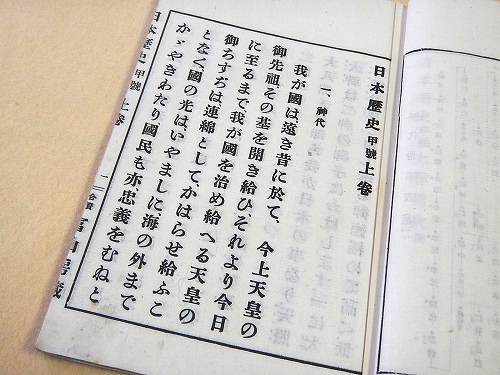 日本歴史 甲號 上卷
一、神代
我が國は、遠き昔に於て、　今上天皇の
御先祖その基を開き給ひ、それより今日
に至るまで我が國を治め給へる天皇の
御ちすぢは連綿として、かはらせ給ふこ
となく、國の光は、いやましに、海の外まで
かゞやきわたり國民も亦忠義をむねと
日本歴史 甲號 上卷